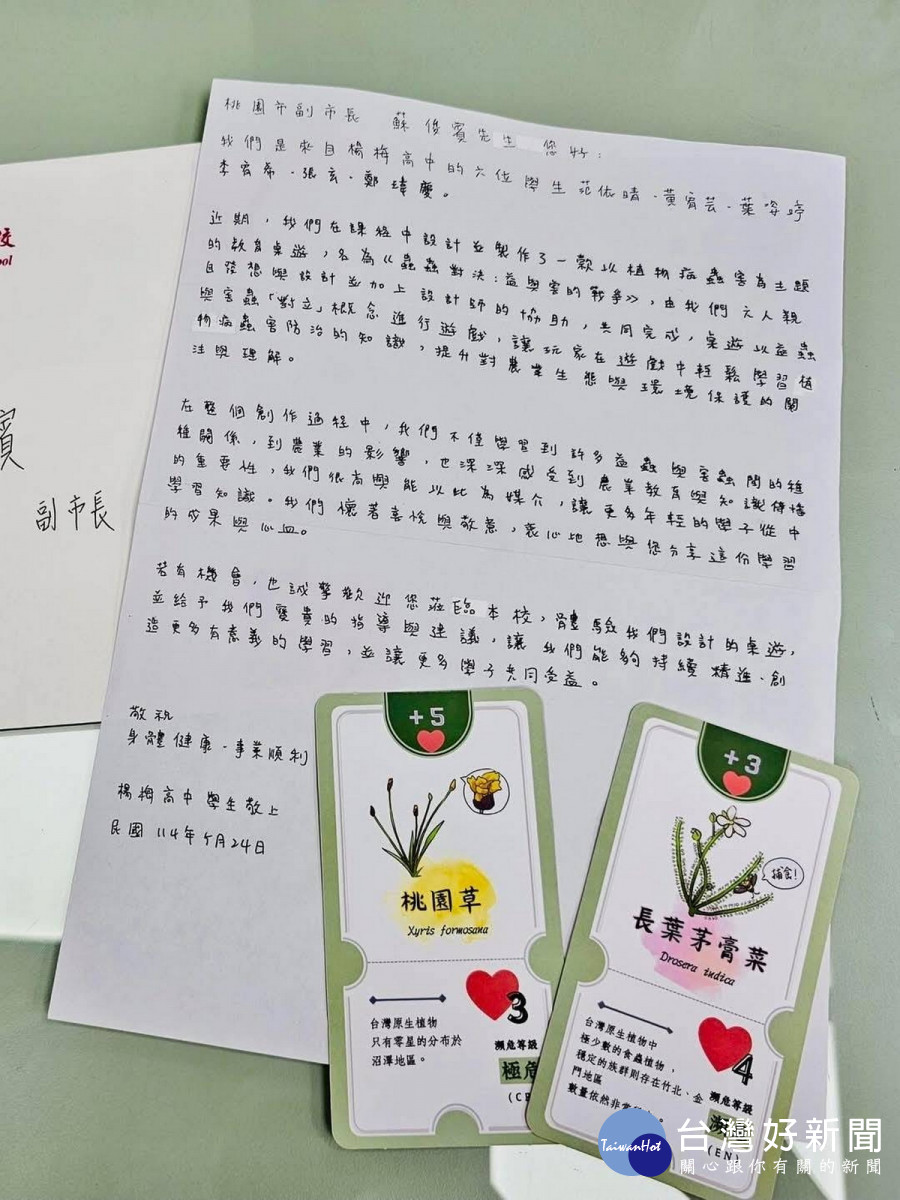 桃園市副市長 蘇俊賓先生 您好：
我們是來自楊梅高中的六位學生范依晴、黃宥芸、葉姿婷
李宥希、張玄、鄭瑋慶。
近期，我們在課程中設計並製作了一款以植物病蟲害為主題
的教育桌遊，名為《蟲蟲對決：益與害的戰爭》，由我們六人親
自發想與設計並加上設計師的協助，共同完成，桌遊以益蟲
與害蟲「對立」概念進行遊戲，讓玩家在遊戲中輕鬆學習植
物病蟲害防治的知識，提升對農業生態與環境保護的關
注與理解。
在整個創作過程中，我們不僅學習到許多益蟲與害蟲間的種
種關係，到農業的影響，也深深感受到農業教育與知識傳播
的重要性，我們很高興能以此為媒介，讓更多年輕的學子從中
學習知識。我們懷著喜悅與敬意，衷心地想與您分享這份學習
的成果與心血。
若有機會，也誠摯歡迎您蒞臨本校，體驗我們設計的桌遊，
並給予我們寶貴的指導與建議，讓我們能夠持續精進、創
造更多有意義的學習，並讓更多學子共同受益。
敬祝
身體健康、事業順利
楊梅高中學生敬上
民國114年5月24日
校
ool
賓
副市長
+5
桃園草
Xyris formosana
3
台灣原生植物
只有零星的分布於
沼澤地區。
瀕危等級
極危
+3
捕食!
長葉茅膏菜
Drosera indica
4
台灣原生植物中
極少數的食蟲植物，
穩定的族群則存在竹北、金
門地區
數量依然非常
瀕危等級
(EN)
TaiwanHot
台灣好新聞
關心跟你有關的新聞